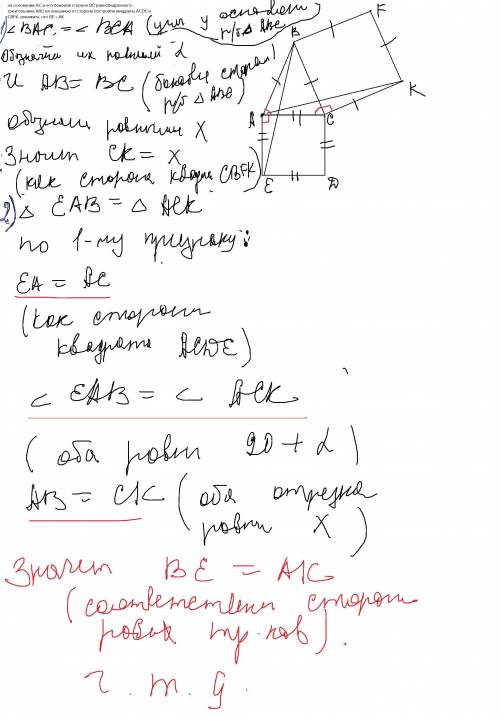 на основании АС и его боковой стороне ВС равнобедренного
треугольника АВС во внешнюю от сторону построили квадраты ACDE и
CBFK. докажите, что BE = AK
1) ∠ BAC = ∠ BCA (углы у основания р/б △ ABC)
Обозначим их равными α
и AB = BC (боковые стороны р/б △ ABC)
обозначим равными X
Значит CK = X
(как сторона квадрата CBFK)
2) △ EAB = △ ACK
по 1-му признаку:
EA = AC
(как стороны
квадрата ACDE)
∠ EAB = ∠ ACK
(оба равны 90 + α)
AB = CK (оба отрезка
равны X)
Значит BE = AK
(соответствен сторон
равных тр-ков).
Ч. т. д.
B
F
K
A
C
E
D